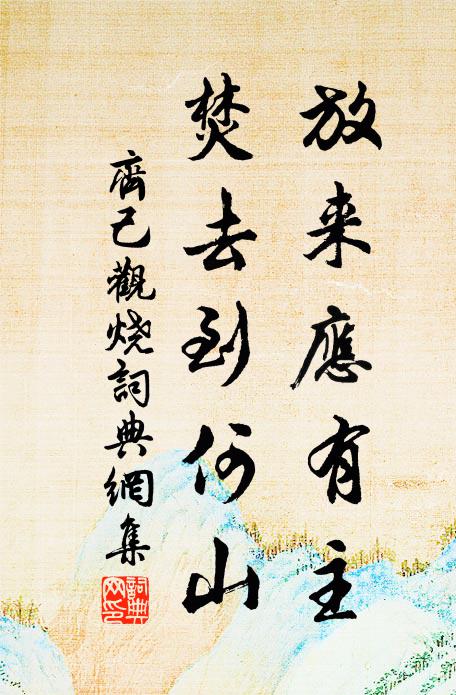 放来應有主
焚去到何山
齊己觀烧詞典網集
詞典